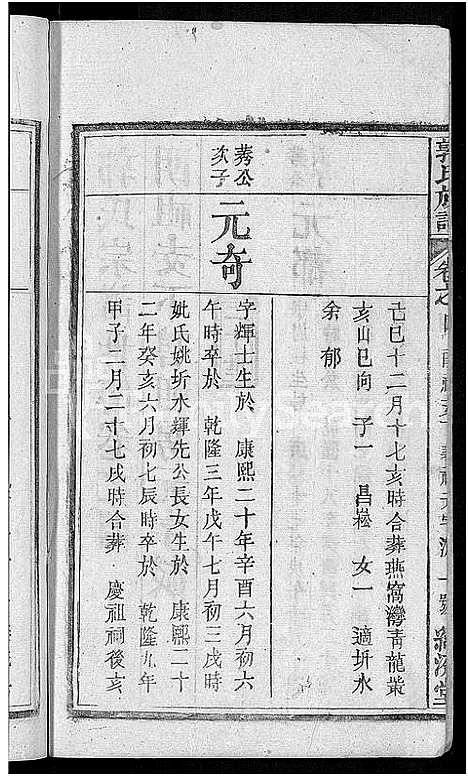 郭氏族譜
卷之
己巳十二月十七亥時合葬燕窩灣青龍嘴
亥山巳向 子一 昌崧 女一 適圻水
余郁
莠公
次子
元奇
字輝士生於 康熙二十年辛酉六月初六
午時卒於 乾隆三年戊午七月初三戌時
妣氏姚圻水輝先公長女生於 康熙二十
二年癸亥六月初七辰時卒於 乾隆九年
甲子二月二十七戌時合葬 慶祖祠後亥